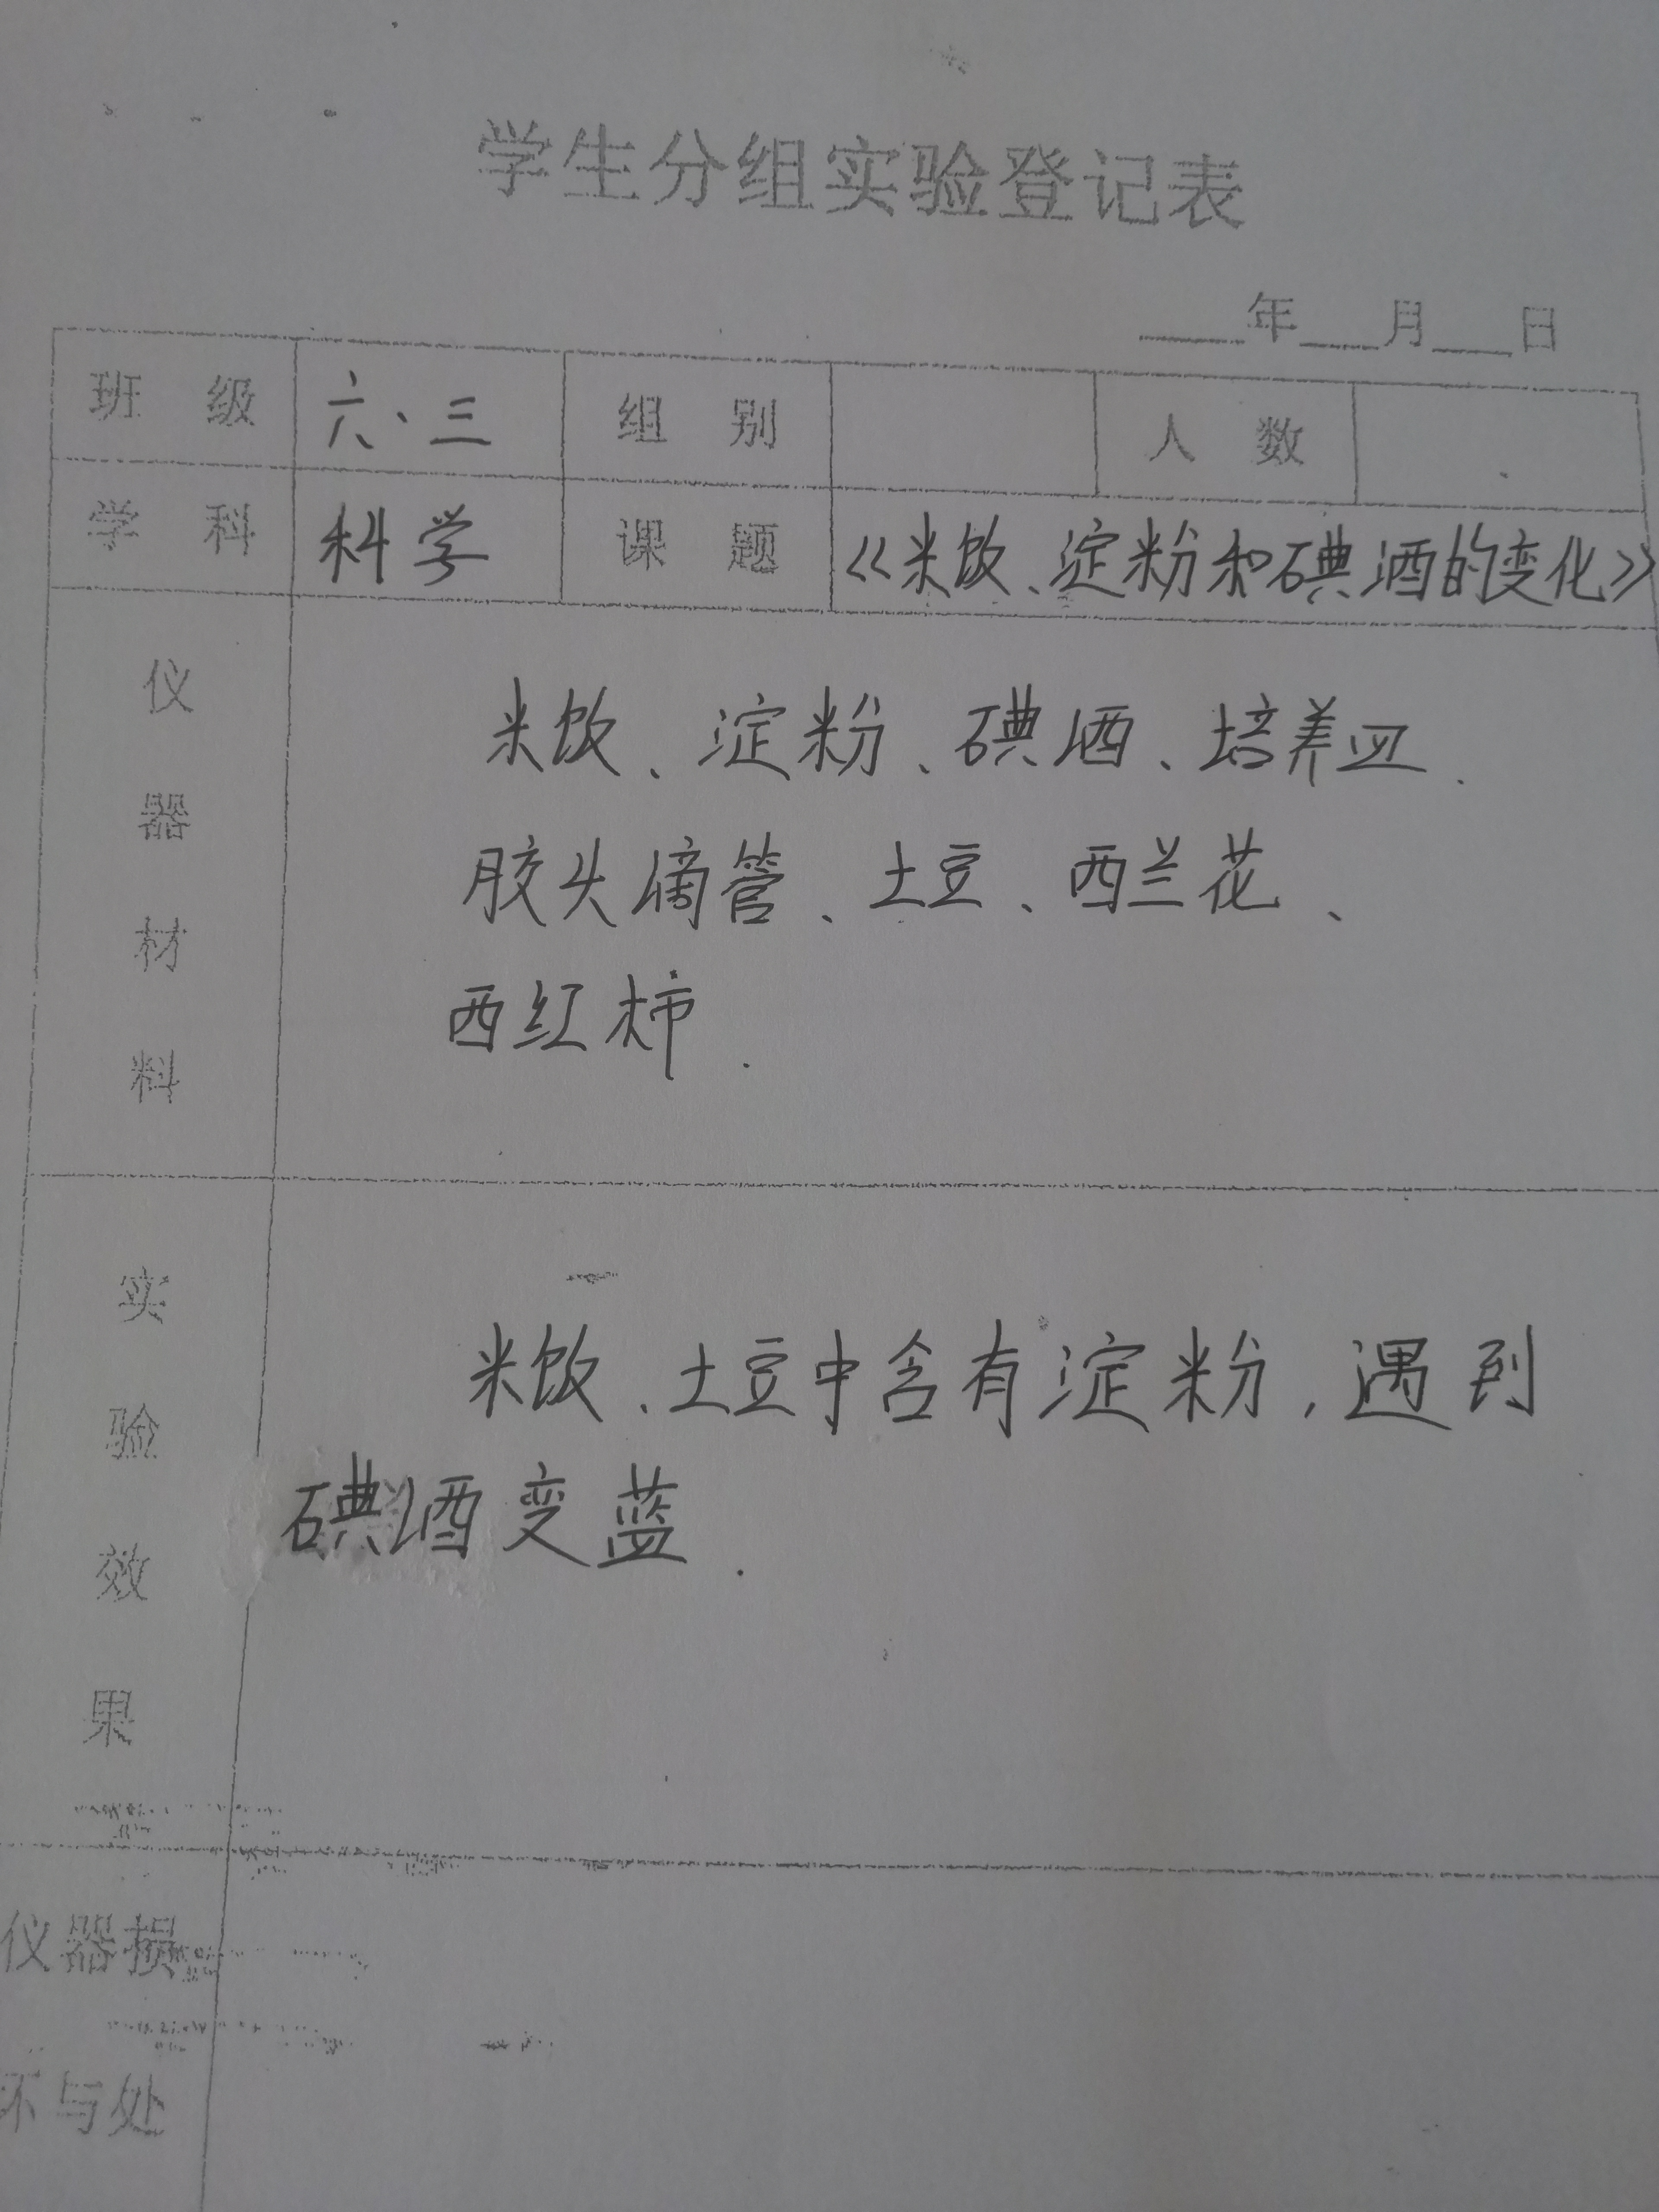 学生分组实验登记表
___年___月___日
班级 六、三 组别 人数
学科 科学 课题 《米饭、淀粉和碘酒的变化》
仪器材料
米饭、淀粉、碘酒、培养皿、
胶头滴管、土豆、西兰花、
西红柿.
实验效果
米饭、土豆中含有淀粉,遇到
碘酒变蓝.
仪器损
坏与处